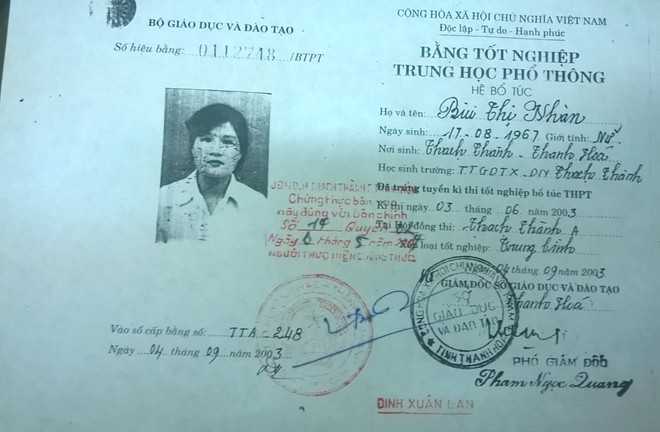 BỘ GIÁO DỤC VÀ ĐÀO TẠO
Số hiệu bằng: 0112748 /BTPT
CỘNG HÒA XÃ HỘI CHỦ NGHĨA VIỆT NAM
Độc lập - Tự do - Hạnh phúc
BẰNG TỐT NGHIỆP
TRUNG HỌC PHỔ THÔNG
HỆ BỔ TÚC
Họ và tên: Bùi Thị Nhàn
Ngày sinh: 17-08-1967 Giới tính: Nữ
Nơi sinh: Thạch Thành - Thanh Hoá
Học sinh trường: TTGDTX-DN Thạch Thành
Đã trúng tuyển kì thi tốt nghiệp bổ túc THPT
Kì thi ngày 03 tháng 06 năm 2003
Tại Hội đồng thi: Thạch Thành A
loại tốt nghiệp: Trung bình
04 tháng 09 năm 2003
GIÁM ĐỐC SỞ GIÁO DỤC VÀ ĐÀO TẠO
Thanh Hoá
PHÓ GIÁM ĐỐC
Phạm Ngọc Quang
Chứng thực bản
này đúng với bản chính
Số 17 Quyển
Ngày 6 tháng 5 năm
NGƯỜI THỰC HIỆN CHỨNG THỰC
GIÁO DỤC
VÀ ĐÀO TẠO
TỈNH THANH
Vào sổ cấp bằng số: TTA-248
Ngày 04 tháng 09 năm 2003
ĐINH XUÂN LAN